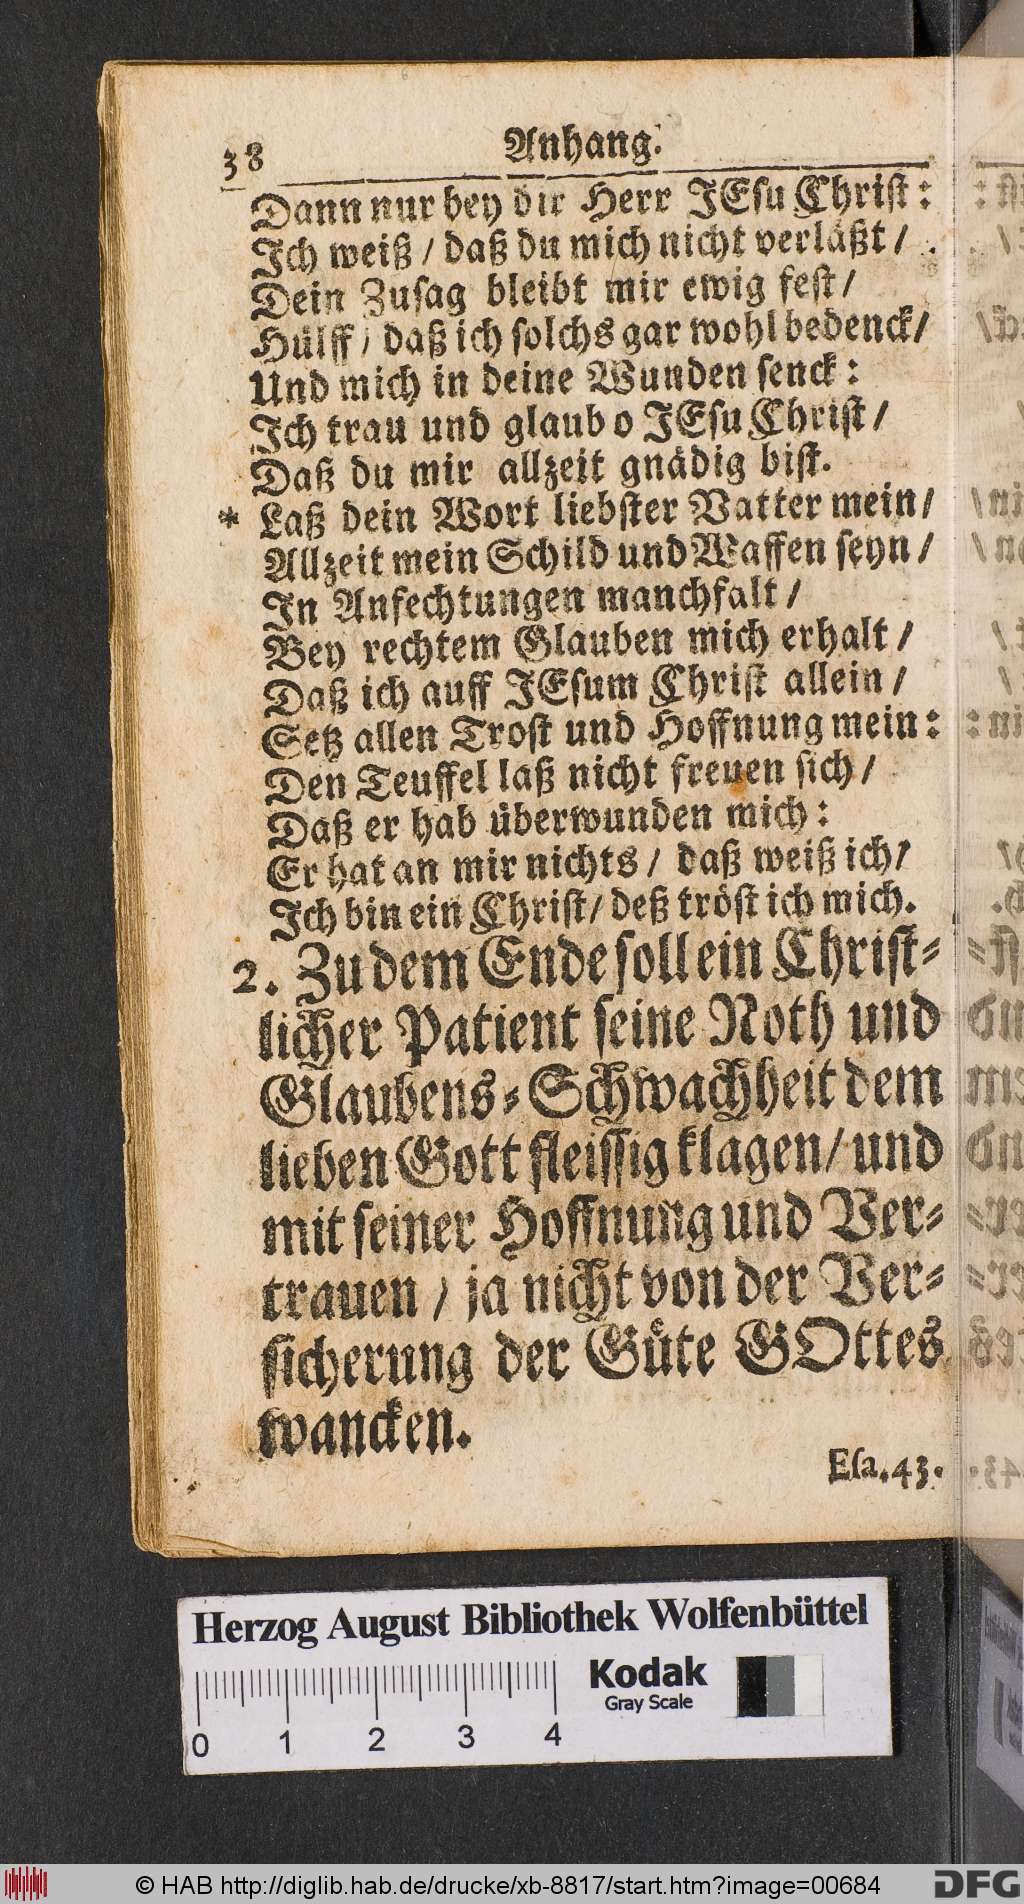 38 Anhang.
Dann nur bey dir Herr JEsu Christ:
Jch weiß / daß du mich nicht verläßt /
Dein Zusag bleibt mir ewig fest /
Hülff / daß ich solchs gar wohl bedenck /
Und mich in deine Wunden senck:
Jch trau und glaub o JEsu Christ /
Daß du mir allzeit gnädig bist.
* Laß dein Wort liebster Vatter mein /
Allzeit mein Schild und Waffen seyn /
Jn Anfechtungen manchfalt /
Bey rechtem Glauben mich erhalt /
Daß ich auff JEsum Christ allein /
Setz allen Trost und Hoffnung mein:
Den Teuffel laß nicht freuen sich /
Daß er hab überwunden mich:
Er hat an mir nichts / daß weiß ich /
Jch bin ein Christ / deß tröst ich mich.
2. Zu dem Ende soll ein Christ-
licher Patient seine Noth und
Glaubens-Schwachheit dem
lieben Gott fleissig klagen / und
mit seiner Hoffnung und Ver-
trauen / ja nicht von der Ver-
sicherung der Güte GOttes
wancken.
Esa. 43.
Herzog August Bibliothek Wolfenbüttel
Kodak
Gray Scale
0 1 2 3 4
© HAB http://diglib.hab.de/drucke/xb-8817/start.htm?image=00684
DFG